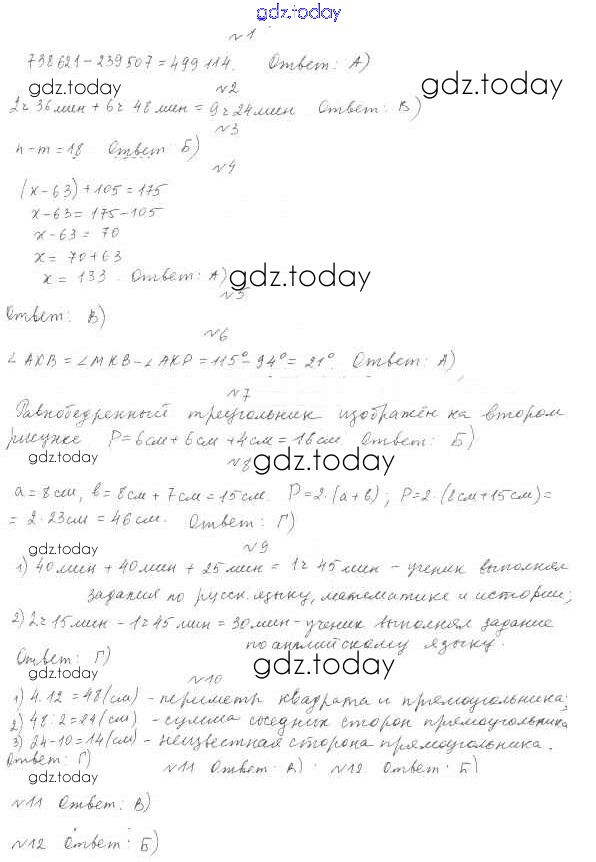 gdz.today
№1
738621-239507=499114. Ответ: А)
gdz.today
№2
gdz.today
2ч 36мин + 6ч 48 мин = 9ч 24мин Ответ: В)
№3
n-m=18 Ответ: Б)
№4
(x-63)+105=175
x-63=175-105
x-63=70
x=70+63
x=133. Ответ: А)
gdz.today
№5
Ответ: В)
№6
∠АКВ=∠МКВ-∠АКР=115°-94°=21°. Ответ: А)
№7
Равнобедренный треугольник изображён на втором
рисунке. Р=6см+6см+4см=16см. Ответ: Б)
gdz.today
№8
gdz.today
a=8см, b=8см+7см=15см. Р=2·(a+b); Р=2·(8см+15см)=
=2·23см=46см. Ответ: Г)
gdz.today
№9
1) 40мин+40мин+25мин=1ч 45мин-ученик выполнял
задания по русск. языку, математике и истории;
2) 2ч 15мин-1ч 45мин=30мин-ученик выполнял задание
по английскому языку.
Ответ: Г)
gdz.today
gdz.today
№10
1) 4·12=48(см)-периметр квадрата и прямоугольника;
2) 48:2=24(см)-сумма соседних сторон прямоугольника
3) 24-10=14(см)-неизвестная сторона прямоугольника.
Ответ: Г)
№11 Ответ: В). №12 Ответ: Б)
gdz.today
№11 Ответ: В)
№12 Ответ: Б)